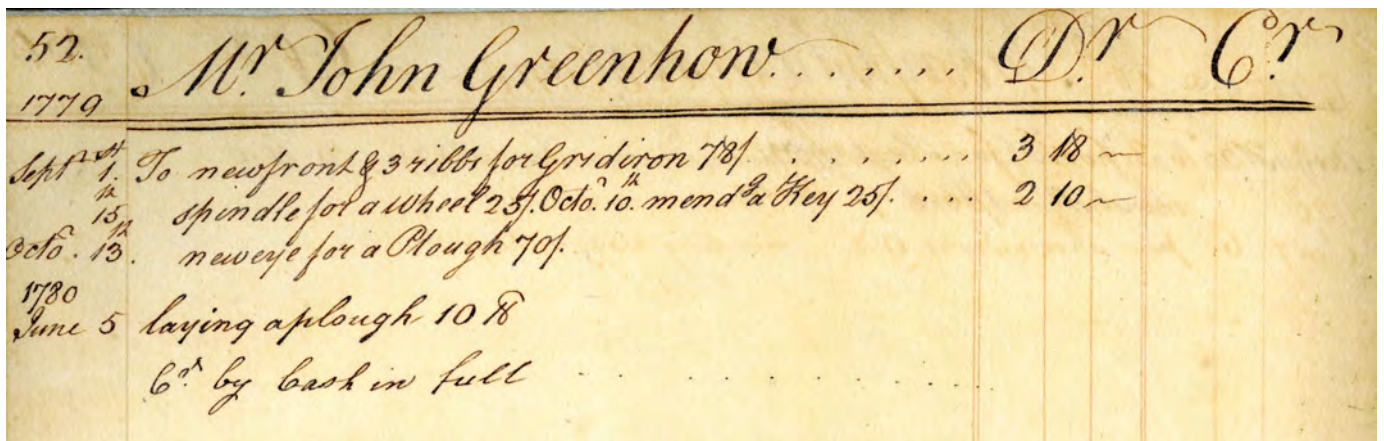 52. Mr. John Greenhow........ Dr. Cr.
1779
Septr. 1st. To new front & 3 ribbs for Gridiron 78/. ......... 3 18 ~
15th. spindle for a Wheel 25/. Octor. 10th. mendg a Key 25/. .... 2 10 ~
Octor. 13th. new eye for a Plough 70/.
1780
June 5 laying a plough 10 lb
Cr. by Cash in full . . . . . . . . . . . .